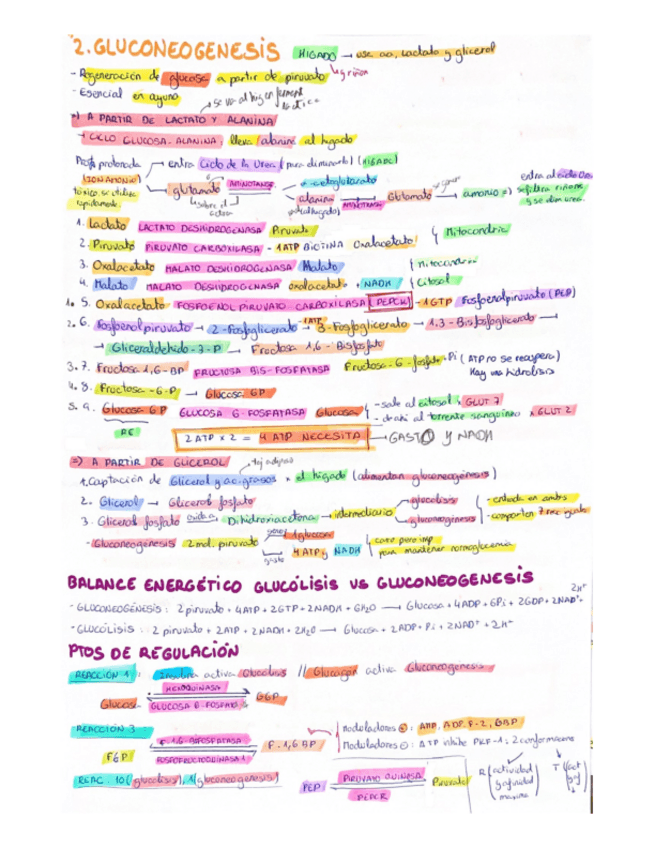 2. GLUCONEOGENESIS HIGADO → use aa, lactato y glicerol
- Regeneración de glucosa a partir de piruvato ↳ y riñon
- Esencial en ayuno
A PARTIR DE LACTATO Y ALANINA
→ CICLO GLUCOSA-ALANINA: lleva alanina al higado
entra Ciclo de la Urea (para eliminarlo) (HIGADO)
(ION AMONIO)
tóxico, se utiliza rapidamente.
glutamato AMINOTRANSF. α-cetoglutarato
alanina AMINOTRANSF. Glutamato → amonio
1. Lactato LACTATO DESHIDROGENASA Piruvato
2. Piruvato PIRUVATO CARBOXILASA - 1ATP BIOTINA Oxalacetato } Mitocondria
3. Oxalacetato MALATO DESHIDROGENASA Malato { Mitocondria
4. Malato MALATO DESHIDROGENASA oxalacetato + NADH { Citosol
1. 5. Oxalacetato FOSFOENOL PIRUVATO CARBOXILASA (PEPCK) - 1GTP Fosfoenolpiruvato (PEP)
2. 6. Fosfoenolpiruvato → 2-Fosfoglicerato → 3-Fosfoglicerato → 1,3-Bisfosfoglicerato →
→ Gliceraldehido-3-P → Fructosa 1,6-Bisfosfato
3. 7. Fructosa 1,6-BP FRUCTOSA BIS-FOSFATASA Fructosa-6-fosfato + Pi (ATP no se recupera)
Hay una hidrolisis
4. 8. Fructosa-6-P → Glucosa 6P
5. 9. Glucosa 6P GLUCOSA 6-FOSFATASA Glucosa { - sale al citosol x GLUT 7
- al torrente sanguíneo x GLUT 2
RE
2 ATP x 2 = 4 ATP NECESITA → GASTO Y NADH
A PARTIR DE GLICEROL
1. Captación de Glicerol y ac. grasos x el higado (alimentan gluconeogénesis)
2. Glicerol → Glicerol fosfato
3. Glicerol fosfato oxida a Dihidroxiacetona → intermediario glucolisis
gluconeogénesis
- Gluconeogénesis 2mol. piruvato 1 glucosa
gasto 4 ATP y NADH { caro pero imp.
para mantener normoglucemia
BALANCE ENERGÉTICO GLUCÓLISIS VS GLUCONEOGENESIS
- GLUCONEOGÉNESIS: 2 piruvato + 4ATP + 2GTP + 2NADH + 6H₂O → Glucosa + 4ADP + 6Pi + 2GDP + 2NAD⁺ + 2H⁺
- GLUCÓLISIS: 2 piruvato + 2ATP + 2NADH + 2H₂O → Glucosa + 2ADP + Pi + 2NAD⁺ + 2H⁺
PTOS DE REGULACIÓN
REACCIÓN 1: Insulina activa Glucolisis // Glucagón activa Gluconeogenesis
Glucosa HEXOQUINASA G6P
GLUCOSA 6-FOSFATO
REACCIÓN 3 Moduladores ⊕: AMP, ADP, F-2,6BP
F6P F-1,6-BIFOSFATASA F-1,6BP Moduladores ⊖: ATP inhibe PKF-1; 2 conformaciones
FOSFOFRUCTOQUINASA 1
REAC. 10 (glucolisis), 1 (gluconeogenesis) PEP PIRUVATO QUINASA Piruvato
PEPCK
R (actividad y afinidad maxima